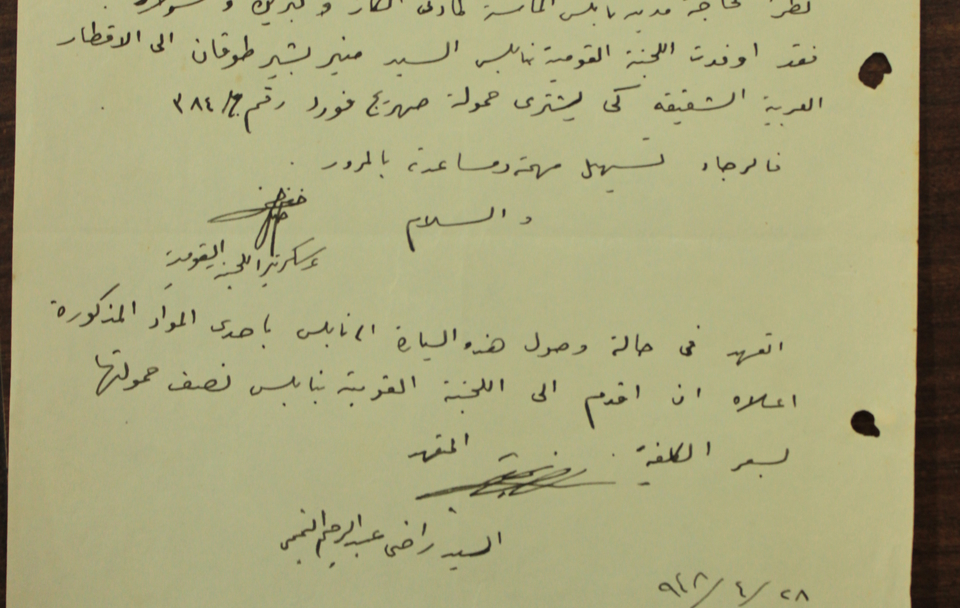 نظرا لحاجة مدينة نابلس الماسة لمادتي الكاز و البنزين و
فقد اوفدت اللجنة القومية بنابلس السيد منير بشير طوقان الى الاقطار
العربية الشقيقة كي يشتري حمولة صهريج فورد رقم ٣٨٤
فالرجاء تسهيل مهمته ومساعدته بالمرور .
والسلام
سكرتير اللجنة القومية
اتعهد في حالة وصول هذه السيارة الى نابلس باحدى المواد المذكورة
اعلاه ان اقدم الى اللجنة القومية بنابلس نصف حمولتها
بسعر الكلفة .
المتعهد
السيد راضي عبد الرحيم النمر
٢٨ / ٤ / ٩٤٨